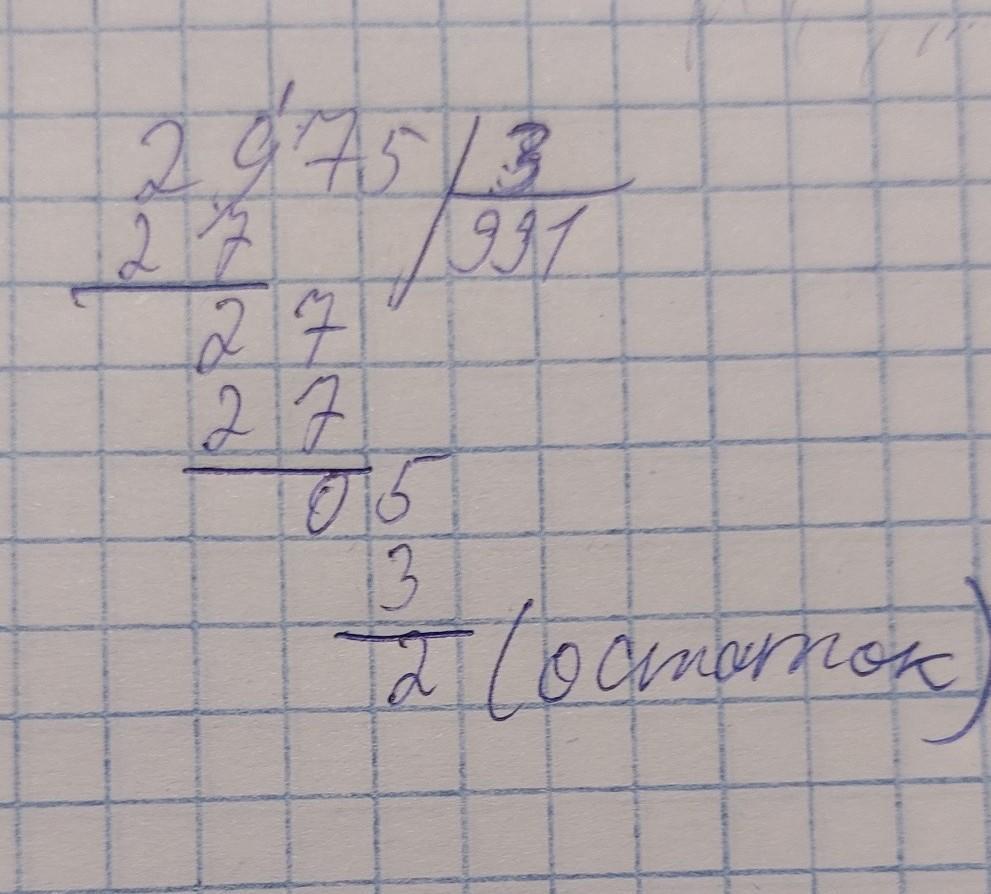 2975 3
27 991
27
27
05
3
2 (остаток)